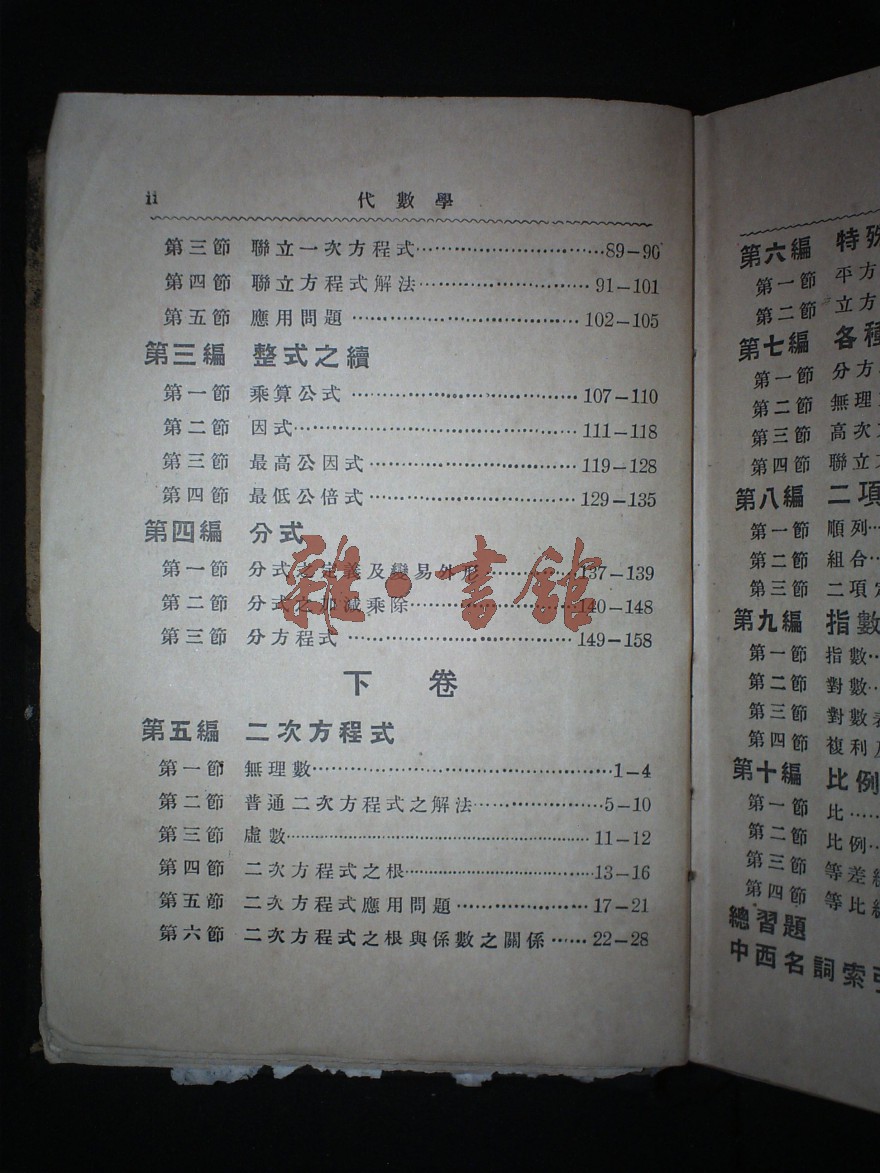 ii 代數學
第三節 聯立一次方程式……………………89－90
第四節 聯立方程式解法……………………91－101
第五節 應用問題……………………102－105
第三編 整式之續
第一節 乘算公式……………………107－110
第二節 因式……………………111－118
第三節 最高公因式……………………119－128
第四節 最低公倍式……………………129－135
第四編 分式
第一節 分式之定義及變易外形……………137－139
第二節 分式之加減乘除……………………140－148
第三節 分方程式……………………149－158
下卷
第五編 二次方程式
第一節 無理數……………………1－4
第二節 普通二次方程式之解法……………5－10
第三節 虛數……………………11－12
第四節 二次方程式之根……………………13－16
第五節 二次方程式應用問題……………17－21
第六節 二次方程式之根與係數之關係……22－28
雜·書館
第六編 特殊
第一節 平方
第二節 立方
第七編 各種
第一節 分方
第二節 無理
第三節 高次
第四節 聯立
第八編 二項
第一節 順列…
第二節 組合…
第三節 二項定
第九編 指數
第一節 指數…
第二節 對數…
第三節 對數表
第四節 複利及
第十編 比例
第一節 比……
第二節 比例…
第三節 等差級
第四節 等比級
總習題
中西名詞索引